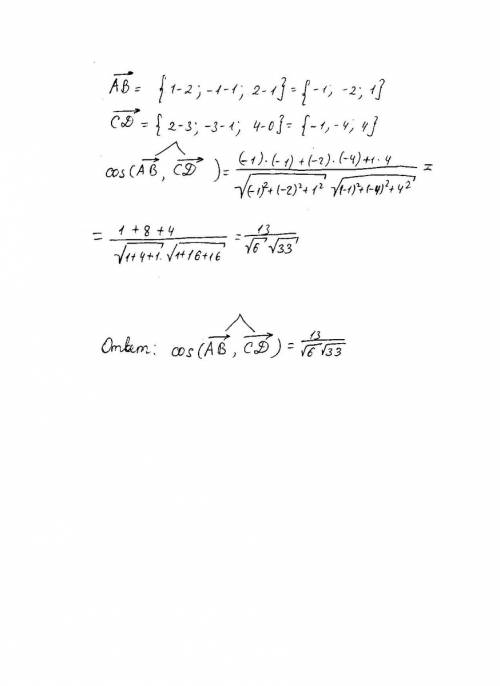 AB = {1-2; -1-1; 2-1} = {-1; -2; 1}
CD = {2-3; -3-1; 4-0} = {-1, -4, 4}
cos(AB, CD) = ((-1)·(-1)+(-2)·(-4)+1·4)/(√((-1)²+(-2)²+1²) √((-1)²+(-4)²+4²)) =
= (1+8+4)/(√(1+4+1)·√(1+16+16)) = 13/(√6 √33)
Ответ: cos(AB, CD) = 13/(√6 √33)